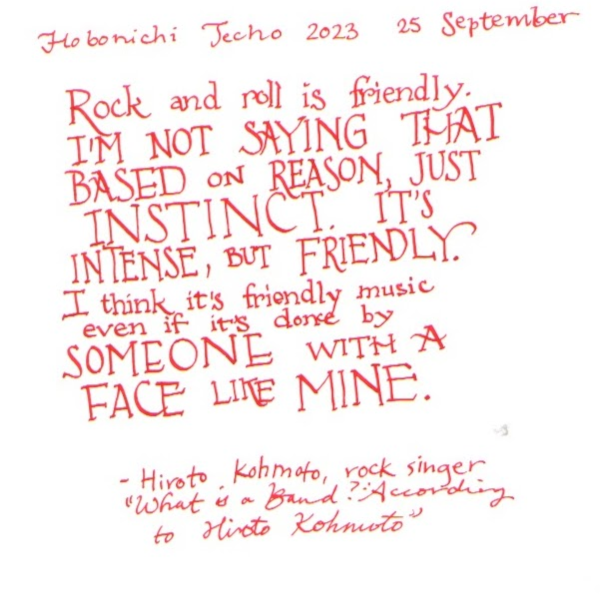 Hobonichi Techo 2023 25 September
Rock and roll is friendly.
I'M NOT SAYING THAT
BASED ON REASON, JUST
INSTINCT. IT'S
INTENSE, BUT FRIENDLY.
I think it's friendly music
even if it's done by
SOMEONE WITH A
FACE LIKE MINE.
- Hiroto Kohmoto, rock singer
"What is a Band?: According
to Hiroto Kohmoto"